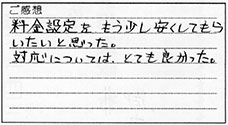 ご感想
料金設定を もう少し安くしてもら
いたいと思った。
対応については、とても良かった。